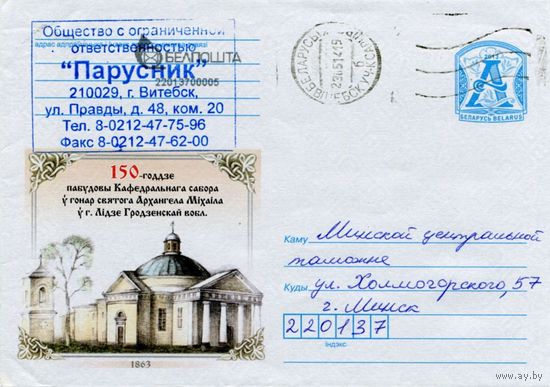 Общество с ограниченной
ответственностью
БЕЛПОШТА
22013700005
"Парусник"
210029, г. Витебск,
ул. Правды, д. 48, ком. 20
Тел. 8-0212-47-75-96
Факс 8-0212-47-62-00
2013
A
БЕЛАРУСЬ BELARUS
150-годдзе
пабудовы Кафедральнага сабора
ў гонар святога Архангела Міхаіла
ў г. Лідзе Гродзенскай вобл.
1863
Каму Минской центральной
таможне
Куды ул. Холмогорского, 57
г. Минск
220137
Індэкс
www.ay.by